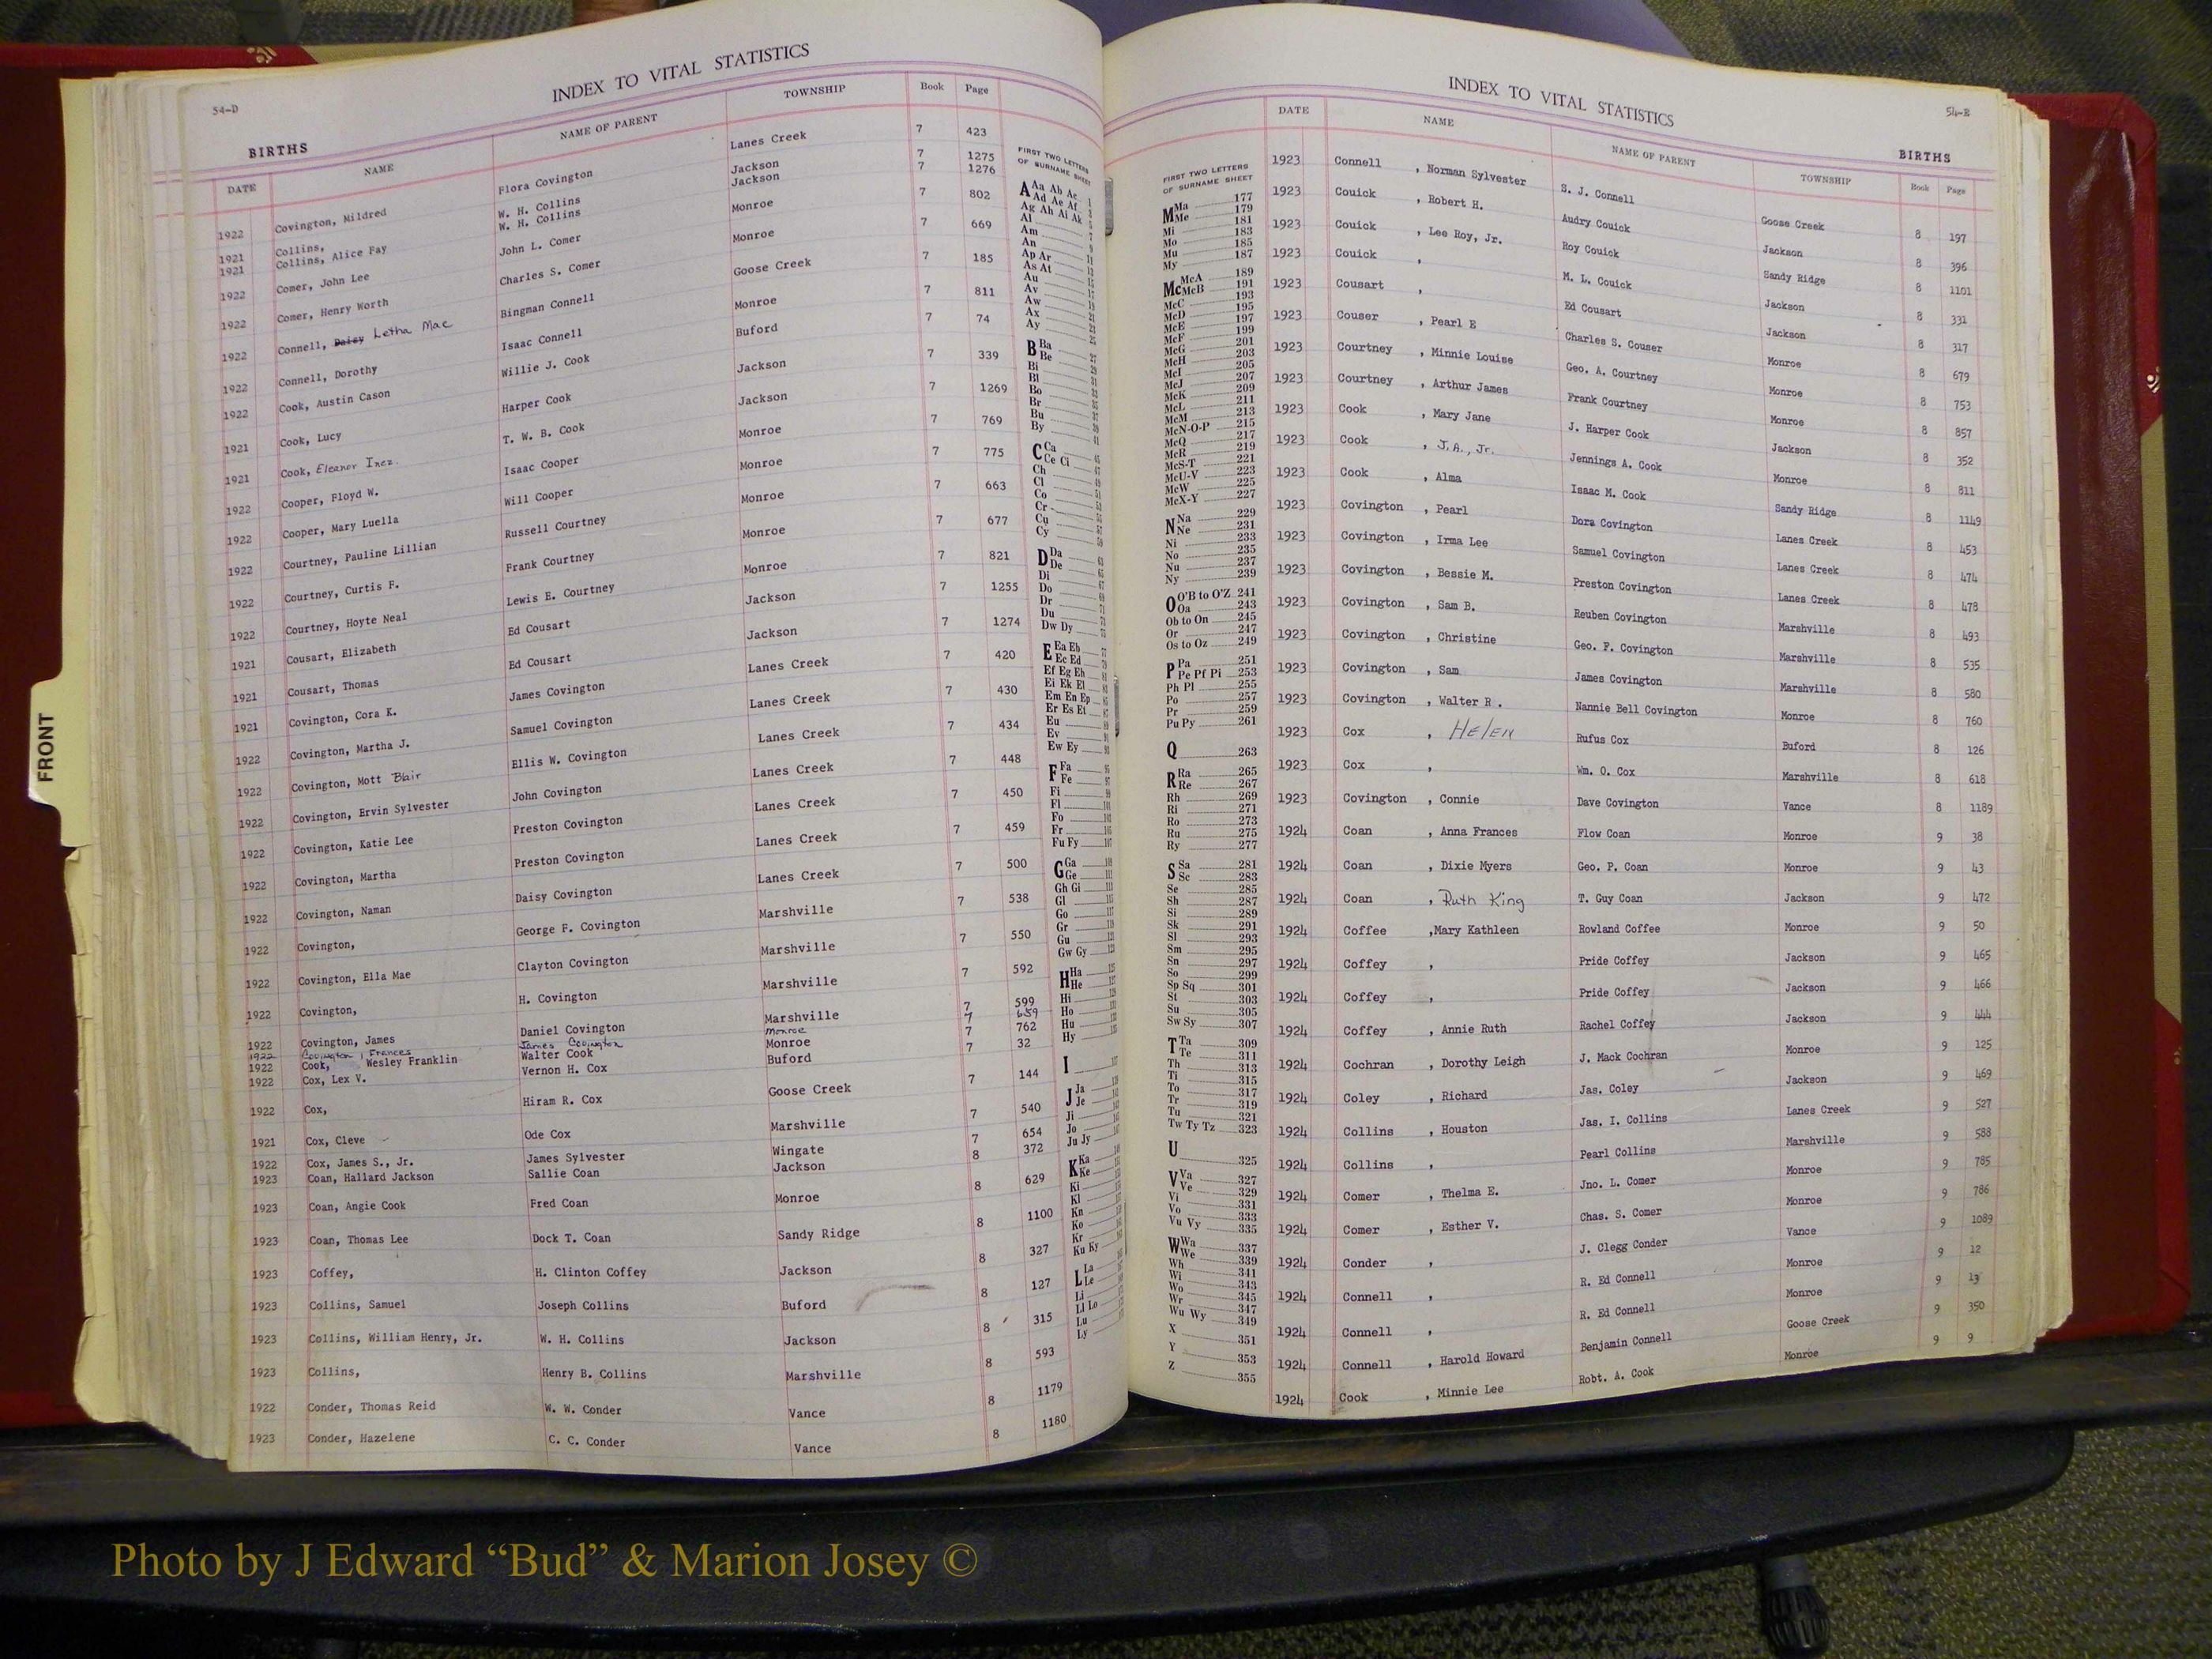 FRONT
54-D
INDEX TO VITAL STATISTICS
BIRTHS
DATE NAME NAME OF PARENT TOWNSHIP Book Page
1922 Covington, Mildred Flora Covington Lanes Creek 7 423
1921 Collins, W. H. Collins Jackson 7 1275
1921 Collins, Alice Fay W. H. Collins Jackson 7 1276
1922 Comer, John Lee John L. Comer Monroe 7 802
1922 Comer, Henry Worth Charles S. Comer Monroe 7 669
1922 Connell, Daisy Letha Mae Bingman Connell Goose Creek 7 185
1922 Connell, Dorothy Isaac Connell Monroe 7 811
1922 Cook, Austin Cason Willie J. Cook Buford 7 74
1921 Cook, Lucy Harper Cook Jackson 7 339
1921 Cook, Eleanor Inez. T. W. B. Cook Jackson 7 1269
1922 Cooper, Floyd W. Isaac Cooper Monroe 7 769
1922 Cooper, Mary Luella Will Cooper Monroe 7 775
1922 Courtney, Pauline Lillian Russell Courtney Monroe 7 663
1922 Courtney, Curtis F. Frank Courtney Monroe 7 677
1922 Courtney, Hoyte Neal Lewis E. Courtney Monroe 7 821
1921 Cousart, Elizabeth Ed Cousart Jackson 7 1255
1921 Cousart, Thomas Ed Cousart Jackson 7 1274
1921 Covington, Cora K. James Covington Lanes Creek 7 420
1922 Covington, Martha J. Samuel Covington Lanes Creek 7 430
1922 Covington, Mott Blair Ellis W. Covington Lanes Creek 7 434
1922 Covington, Ervin Sylvester John Covington Lanes Creek 7 448
1922 Covington, Katie Lee Preston Covington Lanes Creek 7 450
1922 Covington, Martha Preston Covington Lanes Creek 7 459
1922 Covington, Naman Daisy Covington Lanes Creek 7 500
1922 Covington, George F. Covington Marshville 7 538
1922 Covington, Ella Mae Clayton Covington Marshville 7 550
1922 Covington, H. Covington Marshville 7 592
1922 Covington, James Daniel Covington Marshville 7 599
1922 Covington, Frances James Covington Monroe 7 659
1922 Cook, Wesley Franklin Walter Cook Monroe 7 762
1922 Cox, Lex V. Vernon H. Cox Buford 7 32
1922 Cox, Hiram R. Cox Goose Creek 7 144
1921 Cox, Cleve Ode Cox Marshville 7 540
1922 Cox, James S., Jr. James Sylvester Wingate 7 654
1923 Coan, Hallard Jackson Sallie Coan Jackson 8 372
1923 Coan, Angie Cook Fred Coan Monroe 8 629
1923 Coan, Thomas Lee Dock T. Coan Sandy Ridge 8 1100
1923 Coffey, H. Clinton Coffey Jackson 8 327
1923 Collins, Samuel Joseph Collins Buford 8 127
1923 Collins, William Henry, Jr. W. H. Collins Jackson 8 315
1923 Collins, Henry B. Collins Marshville 8 593
1922 Conder, Thomas Reid W. W. Conder Vance 8 1179
1923 Conder, Hazelene C. C. Conder Vance 8 1180
FIRST TWO LETTERS
OF SURNAME SHEET
A Aa Ab Ac
Ad Ae Af
Ag Ah Ai Ak
Al
Am
An
Ap Ar
As At
Au
Av
Aw
Ax
Ay
B Ba
Be
Bi
Bl
Bo
Br
Bu
By
C Ca
Ce Ci
Ch
Cl
Co
Cr
Cu
Cy
D Da
De
Di
Do
Dr
Du
Dw Dy
E Ea Eb
Ec Ed
Ef Eg Eh
Ei Ek El
Em En Ep
Er Es Et
Eu
Ev
Ew Ey
F Fa
Fe
Fi
Fl
Fo
Fr
Fu Fy
G Ga
Ge
Gh Gi
Gl
Go
Gr
Gu
Gw Gy
H Ha
He
Hi
Ho
Hu
Hy
I
J Ja
Je
Ji
Jo
Ju Jy
K Ka
Ke
Ki
Kl
Kn
Ko
Kr
Ku Ky
L La
Le
Li
Ll Lo
Lu
Ly
INDEX TO VITAL STATISTICS
54-E
BIRTHS
FIRST TWO LETTERS
OF SURNAME SHEET
M Ma 177
Me 179
Mi 181
Mo 183
Mu 185
My 187
Mc McA 189
McB 191
McC 193
McD 195
McE 197
McF 199
McG 201
McH 203
McI 205
McJ 207
McK 209
McL 211
McM 213
McN-O-P 215
McQ 217
McR 219
McS-T 221
McU-V 223
McW 225
McX-Y 227
N Na 229
Ne 231
Ni 233
No 235
Nu 237
Ny 239
O O'B to O'Z 241
Oa 243
Ob to On 245
Or 247
Os to Oz 249
P Pa 251
Pe Pf Pi 253
Ph Pl 255
Po 257
Pr 259
Pu Py 261
Q 263
R Ra 265
Re 267
Rh 269
Ri 271
Ro 273
Ru 275
Ry 277
S Sa 281
Sc 283
Se 285
Sh 287
Si 289
Sk 291
Sl 293
Sm 295
Sn 297
So 299
Sp Sq 301
St 303
Su 305
Sw Sy 307
T Ta 309
Te 311
Th 313
Ti 315
To 317
Tr 319
Tu 321
Tw Ty Tz 323
U 325
V Va 327
Ve 329
Vi 331
Vo 333
Vu Vy 335
W Wa 337
We 339
Wh 341
Wi 343
Wo 345
Wr 347
Wu Wy 349
X 351
Y 353
Z 355
DATE NAME NAME OF PARENT TOWNSHIP Book Page
1923 Connell , Norman Sylvester S. J. Connell Goose Creek 8 197
1923 Couick , Robert H. Audry Couick Jackson 8 396
1923 Couick , Lee Roy, Jr. Roy Couick Sandy Ridge 8 1101
1923 Couick , M. L. Couick Jackson 8 331
1923 Cousart , Ed Cousart Jackson 8 317
1923 Couser , Pearl E Charles S. Couser Monroe 8 679
1923 Courtney , Minnie Louise Geo. A. Courtney Monroe 8 753
1923 Courtney , Arthur James Frank Courtney Monroe 8 857
1923 Cook , Mary Jane J. Harper Cook Jackson 8 352
1923 Cook , J.A., Jr. Jennings A. Cook Monroe 8 811
1923 Cook , Alma Isaac M. Cook Sandy Ridge 8 1149
1923 Covington , Pearl Dora Covington Lanes Creek 8 453
1923 Covington , Irma Lee Samuel Covington Lanes Creek 8 474
1923 Covington , Bessie M. Preston Covington Lanes Creek 8 478
1923 Covington , Sam B. Reuben Covington Marshville 8 493
1923 Covington , Christine Geo. F. Covington Marshville 8 535
1923 Covington , Sam James Covington Marshville 8 580
1923 Covington , Walter R. Nannie Bell Covington Monroe 8 760
1923 Cox , Helen Rufus Cox Buford 8 126
1923 Cox , Wm. O. Cox Marshville 8 618
1923 Covington , Connie Dave Covington Vance 8 1189
1924 Coan , Anna Frances Flow Coan Monroe 9 38
1924 Coan , Dixie Myers Geo. P. Coan Monroe 9 43
1924 Coan , Ruth King T. Guy Coan Jackson 9 472
1924 Coffee ,Mary Kathleen Rowland Coffee Monroe 9 50
1924 Coffey , Pride Coffey Jackson 9 465
1924 Coffey , Pride Coffey Jackson 9 466
1924 Coffey , Annie Ruth Rachel Coffey Jackson 9 444
1924 Cochran , Dorothy Leigh J. Mack Cochran Monroe 9 125
1924 Coley , Richard Jas. Coley Jackson 9 469
1924 Collins , Houston Jas. I. Collins Lanes Creek 9 527
1924 Collins , Pearl Collins Marshville 9 588
1924 Comer , Thelma E. Jno. L. Comer Monroe 9 785
1924 Comer , Esther V. Chas. S. Comer Monroe 9 786
1924 Conder , J. Clegg Conder Vance 9 1089
1924 Connell , R. Ed Connell Monroe 9 12
1924 Connell , R. Ed Connell Monroe 9 13
1924 Connell , Harold Howard Benjamin Connell Goose Creek 9 350
1924 Cook , Minnie Lee Robt. A. Cook Monroe 9 9
Photo by J Edward “Bud” & Marion Josey ©